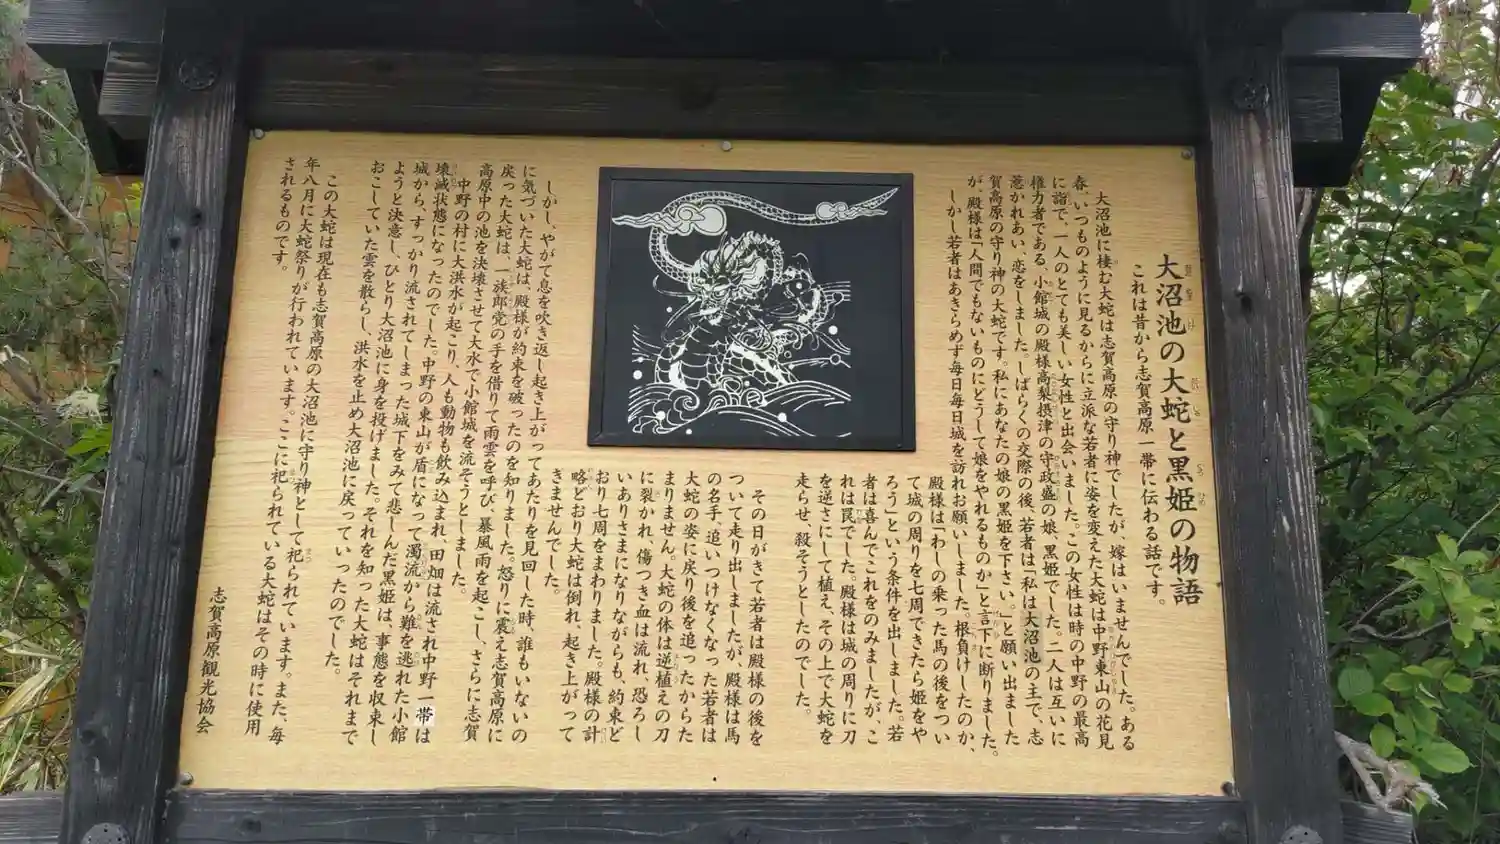 大沼池の大蛇と黒姫の物語
これは昔から志賀高原一帯に伝わる話です。
大沼池に棲む大蛇は志賀高原の守り神でしたが、嫁はいませんでした。ある
春、いつものように見るからに立派な若者に姿を変えた大蛇は中野東山の花見
に詣で、一人のとても美しい女性と出会いました。この女性は時の中野の最高
権力者である、小館城の殿様高梨摂津の守政盛の娘、黒姫でした。二人は互いに
惹かれあい、恋をしました。しばらくの交際の後、若者は「私は大沼池の主で、志
賀高原の守り神の大蛇です。私にあなたの娘の黒姫を下さい。」と願い出ました
が、殿様は「人間でもないものにどうして娘をやれるものか」と言下に断りました。
しかし若者はあきらめず毎日毎日城を訪れお願いしました。根負けしたのか、
殿様は「わしの乗った馬の後をつい
て城の周りを七周できたら姫をや
ろう」という条件を出しました。若
者は喜んでこれをのみましたが、こ
れは罠でした。殿様は城の周りに刀
を逆さにして植え、その上で大蛇を
走らせ、殺そうとしたのでした。
その日がきて若者は殿様の後を
ついて走り出しましたが、殿様は馬
の名手、追いつけなくなった若者は
大蛇の姿に戻り後を追ったからた
まりません。大蛇の体は逆植えの刀
に裂かれ、傷つき血は流れ、恐ろし
いありさまになりながらも、約束ど
おり七周をまわりました。殿様の計
略どおり大蛇は倒れ、起き上がって
きませんでした。
しかし、やがて息を吹き返し起き上がってあたりを見回した時、誰もいないの
に気づいた大蛇は、殿様が約束を破ったのを知りました。怒りに震え志賀高原に
戻った大蛇は、一族郎党の手を借りて雨雲を呼び、暴風雨を起こし、さらに志賀
高原中の池を決壊させて大水で小館城を流そうとしました。
中野の村に大洪水が起こり、人も動物も飲み込まれ、田畑は流され中野一帯は
壊滅状態になったのでした。中野の東山が盾になって濁流から難を逃れた小館
城から、すっかり流されてしまった城下をみて悲しんだ黒姫は、事態を収束し
ようと決意し、ひとり大沼池に身を投げました。それを知った大蛇はそれまで
おこしていた雲を散らし、洪水を止め大沼池に戻っていったのでした。
この大蛇は現在も志賀高原の大沼池に守り神として祀られています。また、毎
年八月に大蛇祭りが行われています。ここに祀られている大蛇はその時に使用
されるものです。
志賀高原観光協会